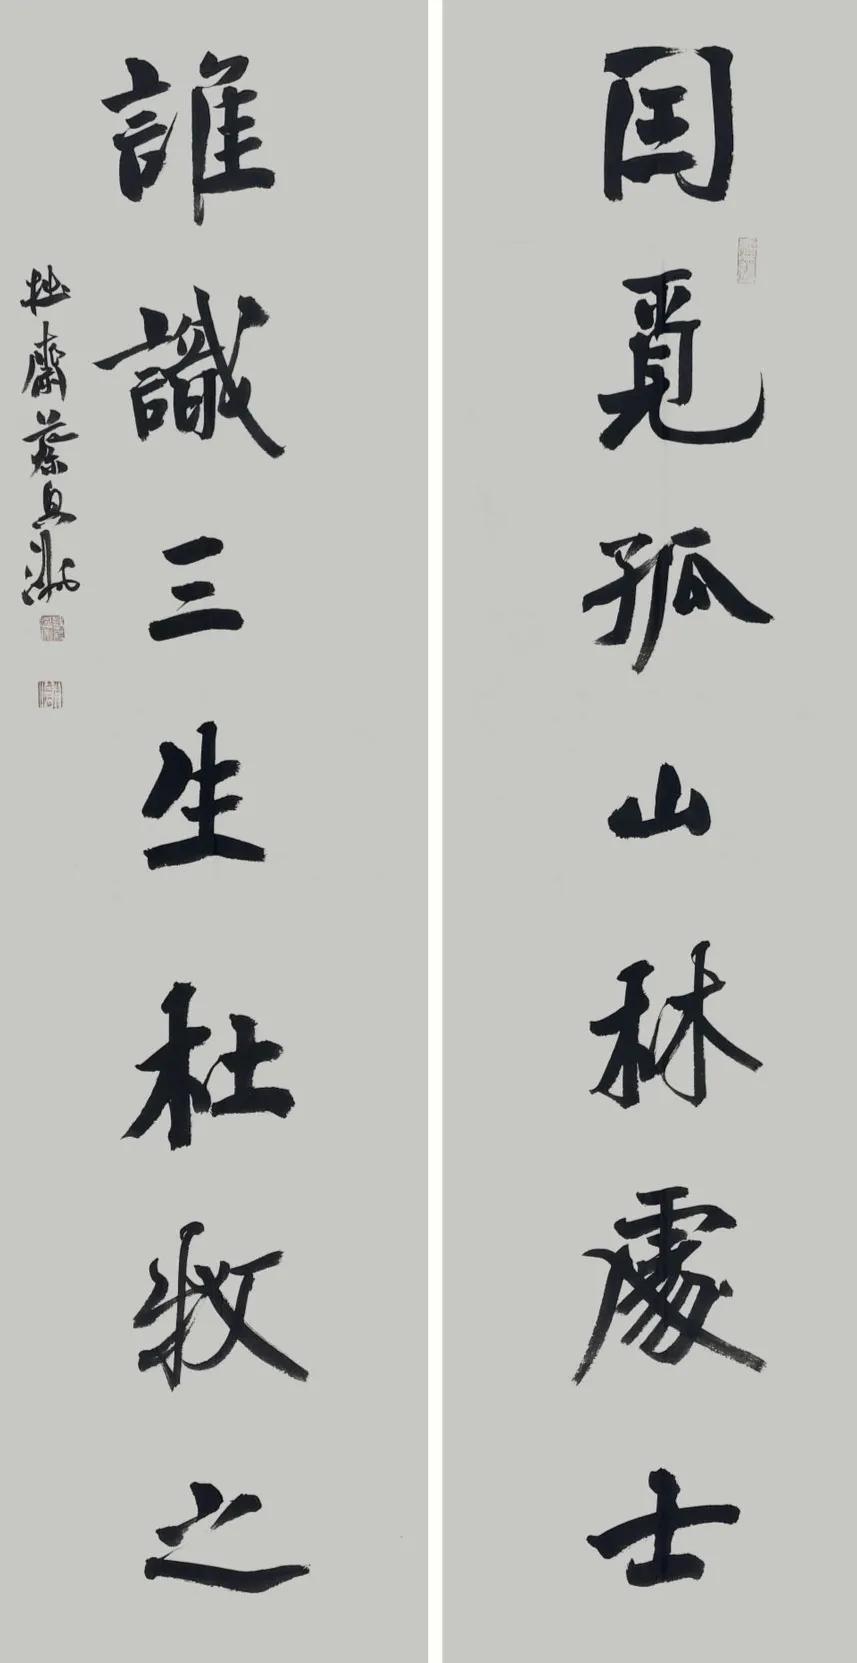 因覓孤山林處士
誰識三生杜牧之
拙齋蔡